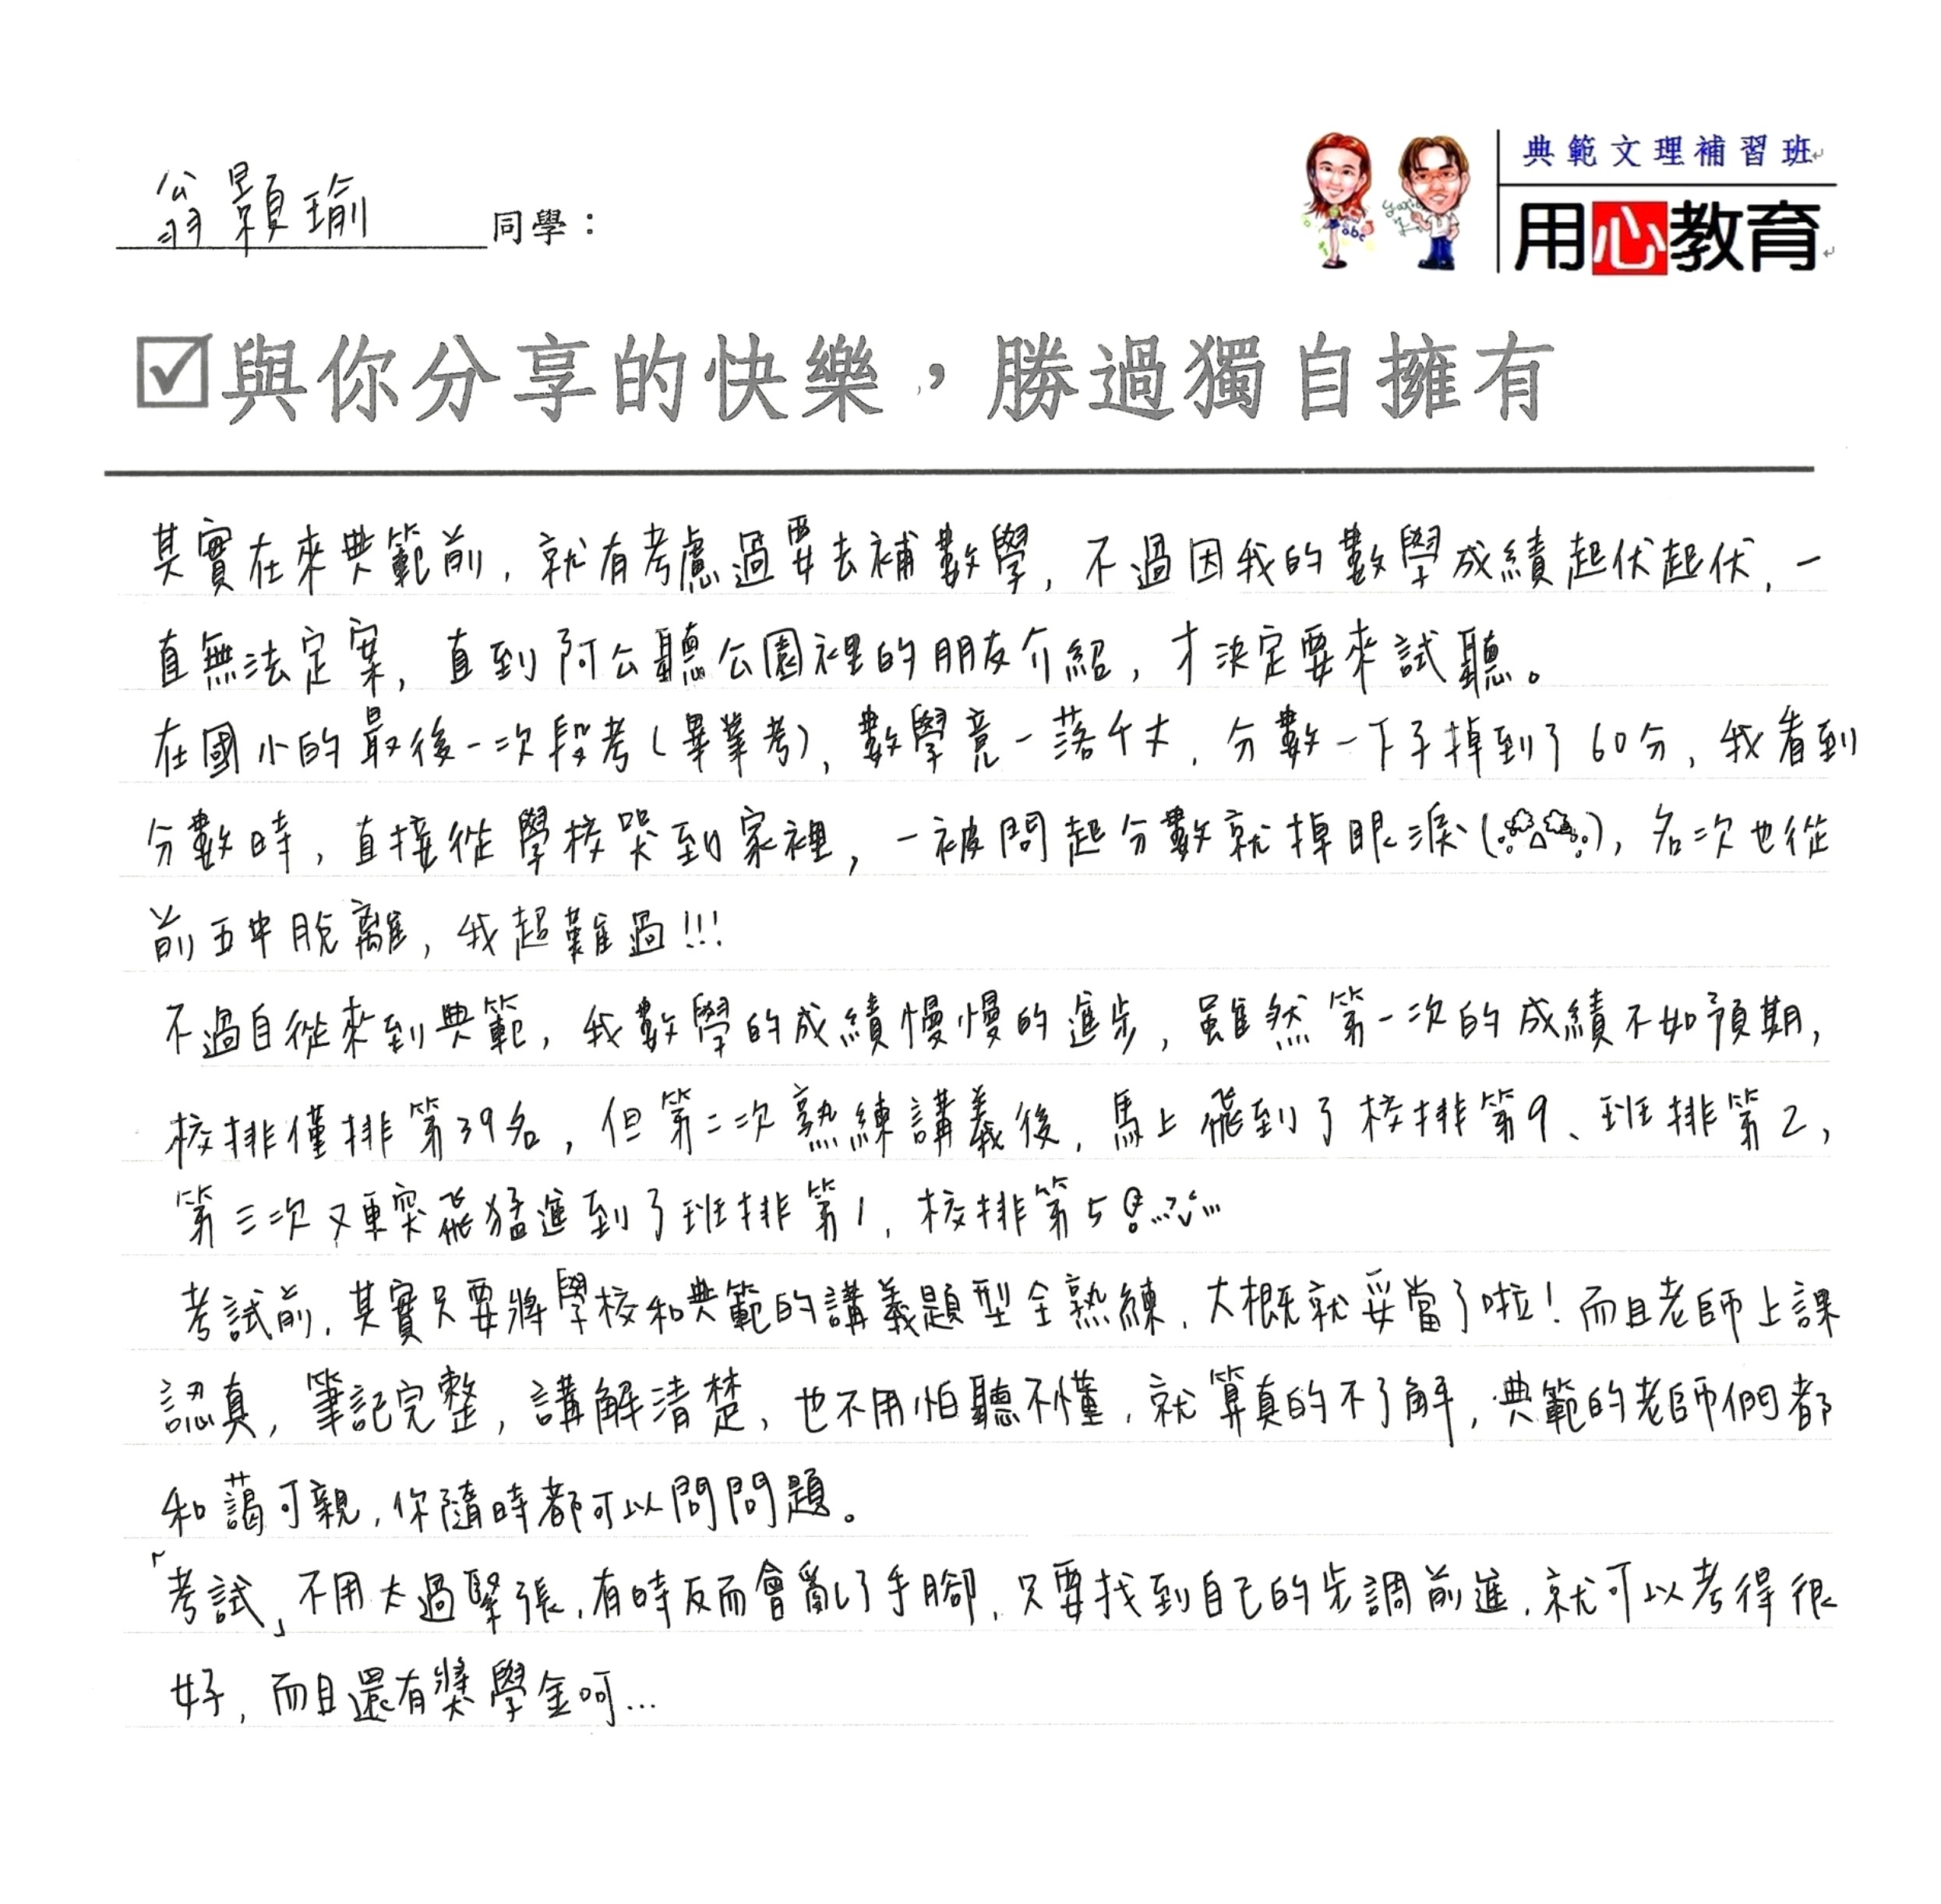 典範文理補習班
用心教育
翁顥瑜 同學：
與你分享的快樂，勝過獨自擁有
其實在來典範前，就有考慮過要去補數學，不過因我的數學成績起伏起伏，一
直無法定案，直到阿公聽公園裡的朋友介紹，才決定要來試聽。
在國小的最後一次段考(畢業考)，數學竟一落千丈，分數一下子掉到了60分，我看到
分數時，直接從學校哭到家裡，一被問起分數就掉眼淚( )，名次也從
前五中脫離，我超難過!!!
不過自從來到典範，我數學的成績慢慢的進步，雖然第一次的成績不如預期，
校排僅排第39名，但第二次熟練講義後，馬上飛到了校排第9、班排第2，
第三次又更突飛猛進到了班排第1，校排第5
考試前，其實只要將學校和典範的講義題型全熟練，大概就妥當了啦！而且老師上課
認真，筆記完整，講解清楚，也不用怕聽不懂，就算真的不了解，典範的老師們都
和藹可親，你隨時都可以問問題。
「考試」不用太過緊張，有時反而會亂了手腳，只要找到自己的步調前進，就可以考得很
好，而且還有獎學金呵…